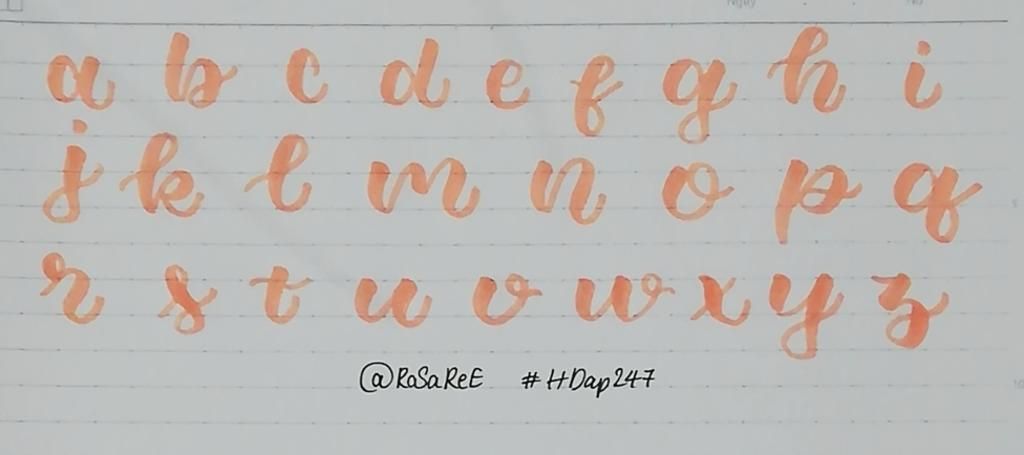 Ngày No
a b c d e f g h i
j k l m n o p q
r s t u v w x y z
@RoSaReE #HDap247